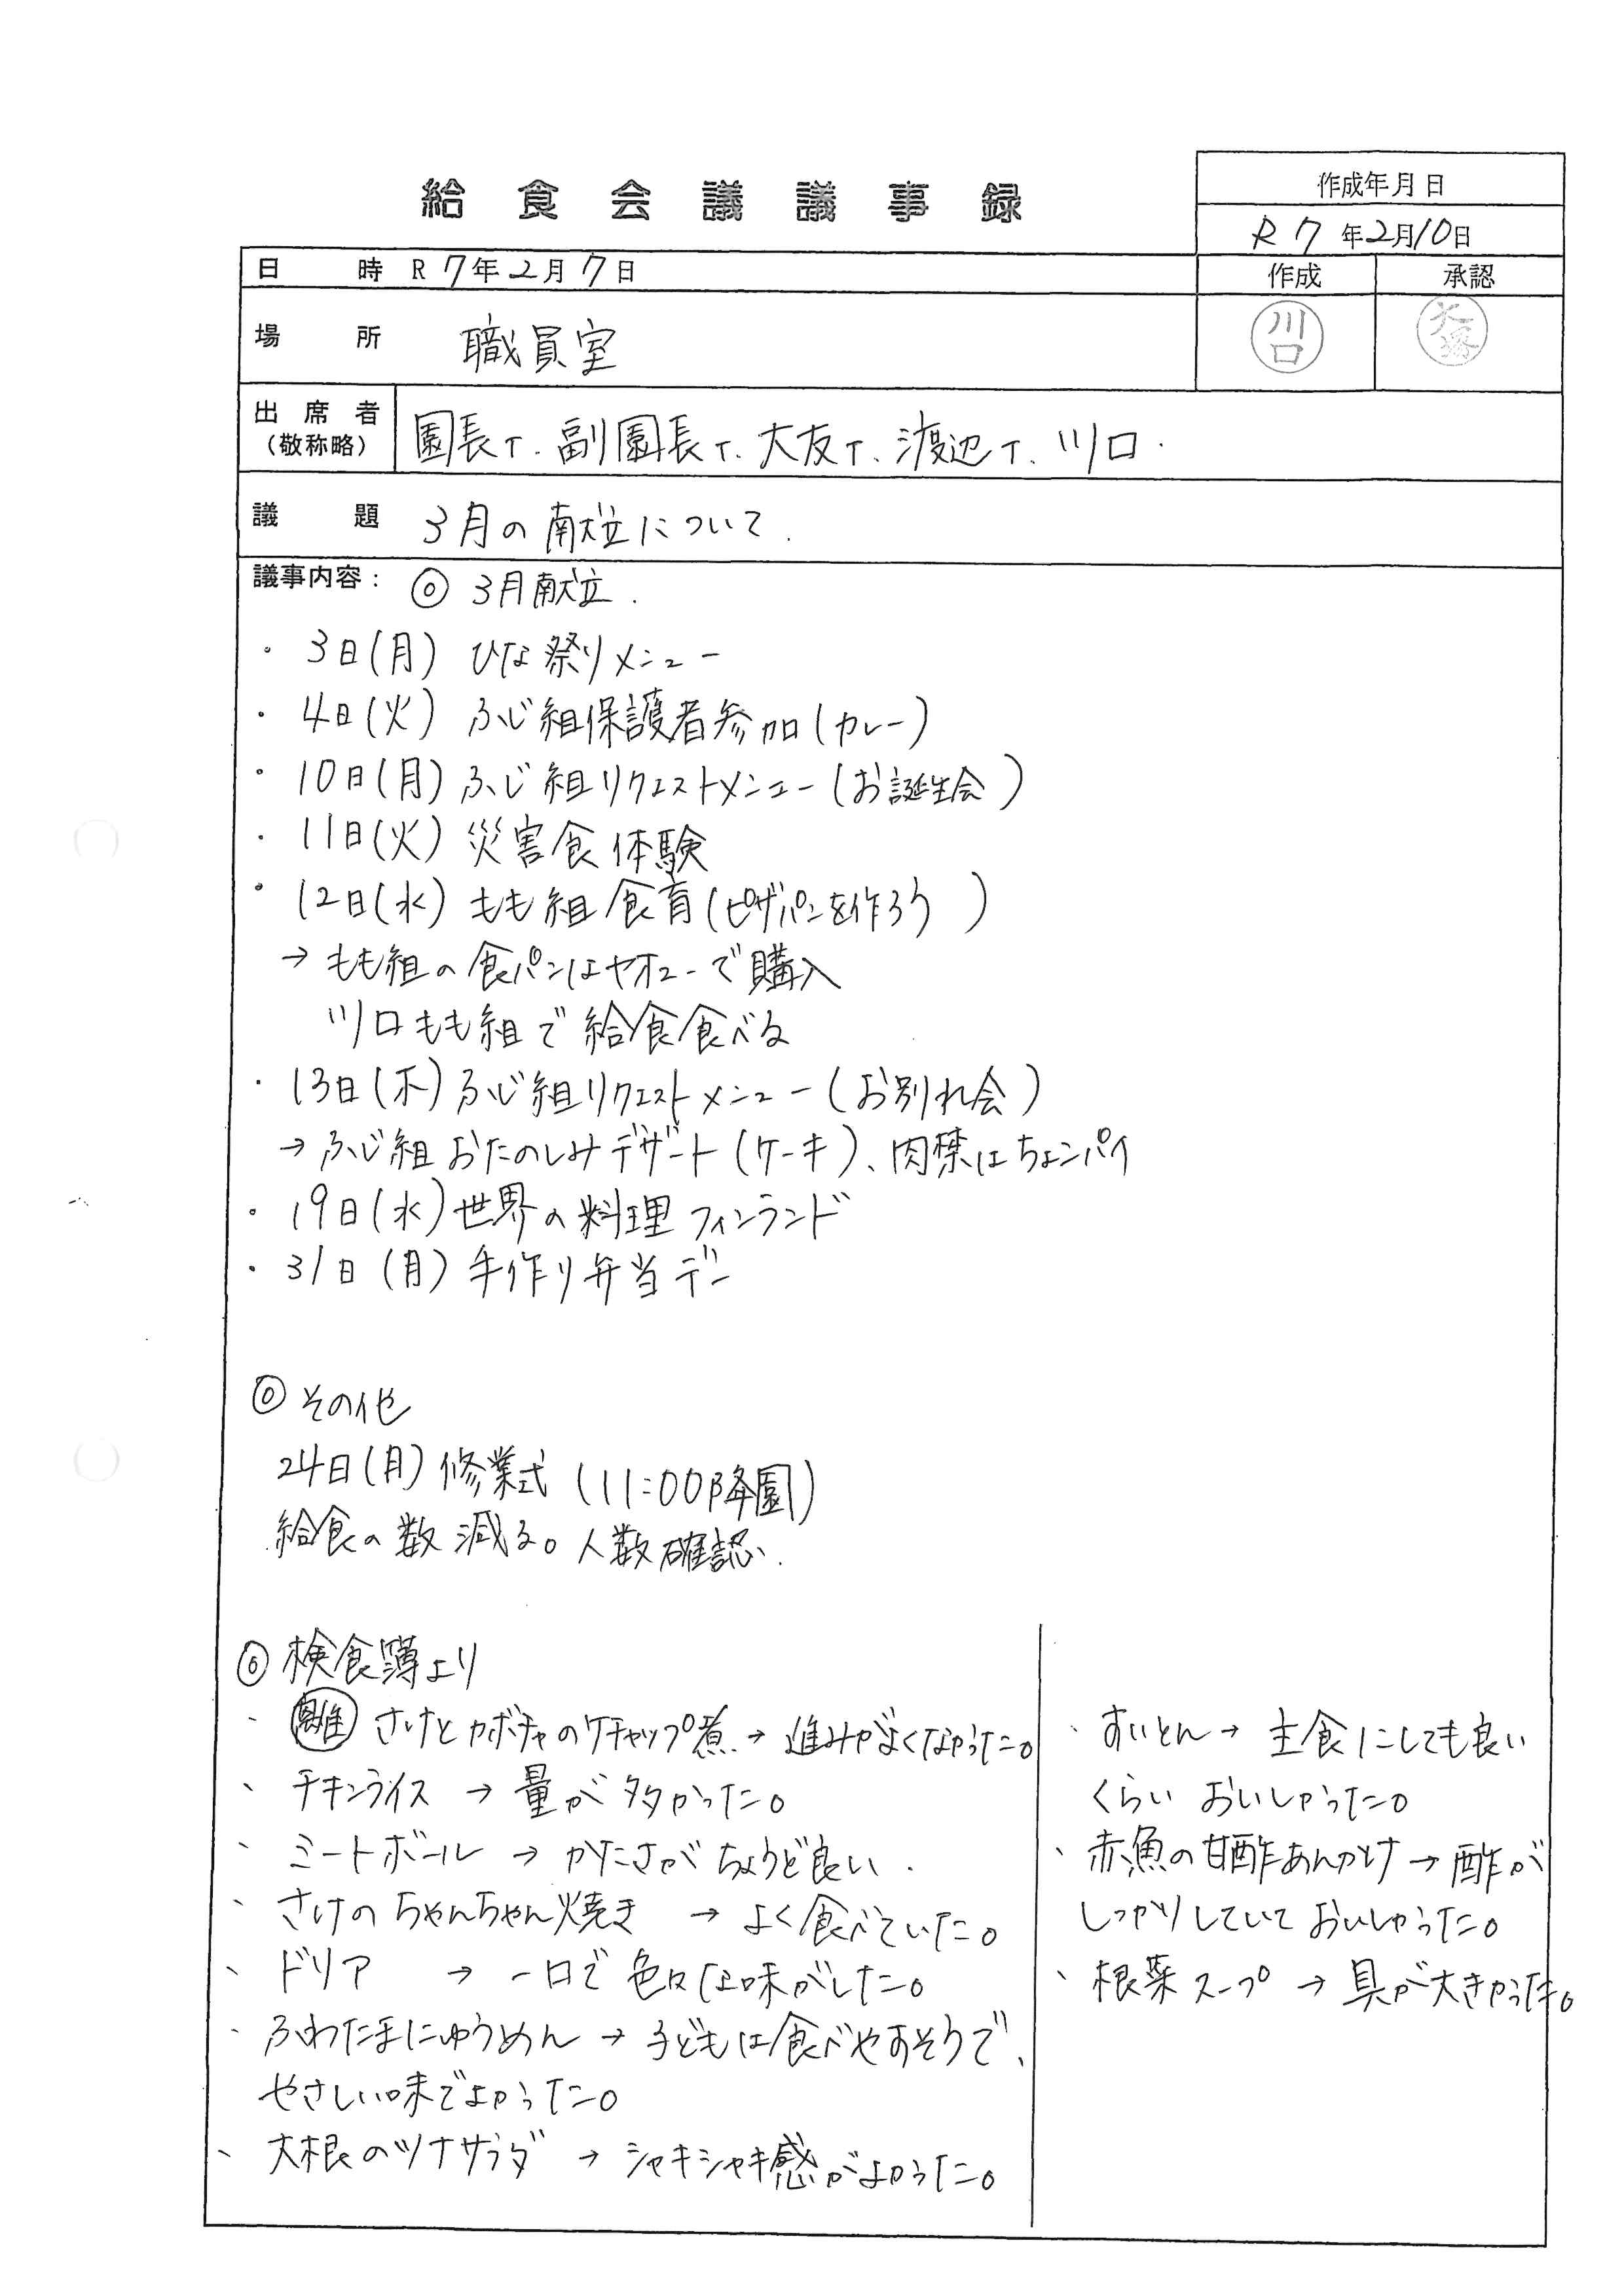 給食会議議事録
作成年月日
R7年2月10日
日時 R7年2月7日
作成 承認
川口 大塚
場所 職員室
出席者 園長T. 副園長T. 大友T. 渡辺T. 川口.
(敬称略)
議題 3月の献立について.
議事内容: ◎ 3月献立.
・ 3日(月) ひな祭りメニュー
・ 4日(火) ふじ組保護者参加(カレー)
・ 10日(月) ふじ組リクエストメニュー(お誕生会)
・ 11日(火) 災害食体験
・ 12日(水) もも組食育(ピザパンを作ろう)
→ もも組の食パンはヤオコーで購入
川口もも組で給食食べる
・ 13日(木) ふじ組リクエストメニュー(お別れ会)
→ ふじ組おたのしみデザート(ケーキ)、肉禁はちょンパイ
・ 19日(水) 世界の料理 フィンランド
・ 31日(月) 手作り弁当デー
◎ その他
24日(月) 修業式 (11:00降園)
給食の数減る。人数確認.
◎ 検食簿より
・ 離 さけとカボチャのケチャップ煮 → 進みがよくなかった。
・ チキンライス → 量が多かった。
・ ミートボール → かたさがちょうど良い.
・ さけのちゃんちゃん焼き → よく食べていた。
・ ドリア → 一口で色々な味がした。
・ ふわたまにゅうめん → 子どもは食べやすそうで、
やさしい味でよかった。
・ 大根のツナサラダ → シャキシャキ感がよかった。
・ すいとん → 主食にしても良い
くらい おいしかった。
・ 赤魚の甘酢あんかけ → 酢が
しっかりしていておいしかった。
・ 根菜スープ → 具が大きかった。